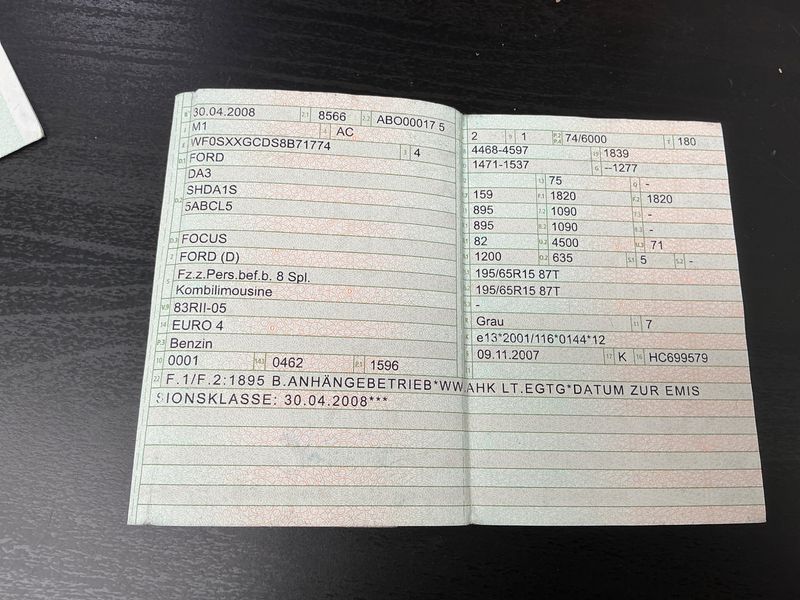 B 30.04.2008 2.1 8566 2.2 ABO00017 5
J M1 4 AC
E WF0SXXGCDS8B71774 3 4
D.1 FORD
DA3
D.2 SHDA1S
5ABCL5
D.3 FOCUS
2 FORD (D)
5 Fz.z.Pers.bef.b. 8 Spl.
Kombilimousine
V.9 83RII-05
14 EURO 4
P.3 Benzin
10 0001 14.1 0462 P.1 1596
22 F.1/F.2:1895 B.ANHÄNGEBETRIEB*WWAHK LT.EGTG*DATUM ZUR EMIS
SIONSKLASSE: 30.04.2008***
2 9 1 P.2 P.4 74/6000 T 180
4468-4597 19 1839
1471-1537 G --1277
13 75 Q -
159 F.1 1820 F.2 1820
895 7.2 1090 7.3 -
895 8.2 1090 8.3 -
82 U.2 4500 U.3 71
1200 O.2 635 S.1 5 S.2 -
195/65R15 87T
195/65R15 87T
-
Grau 11 7
K e13*2001/116*0144*12
6 09.11.2007 17 K 16 HC699579